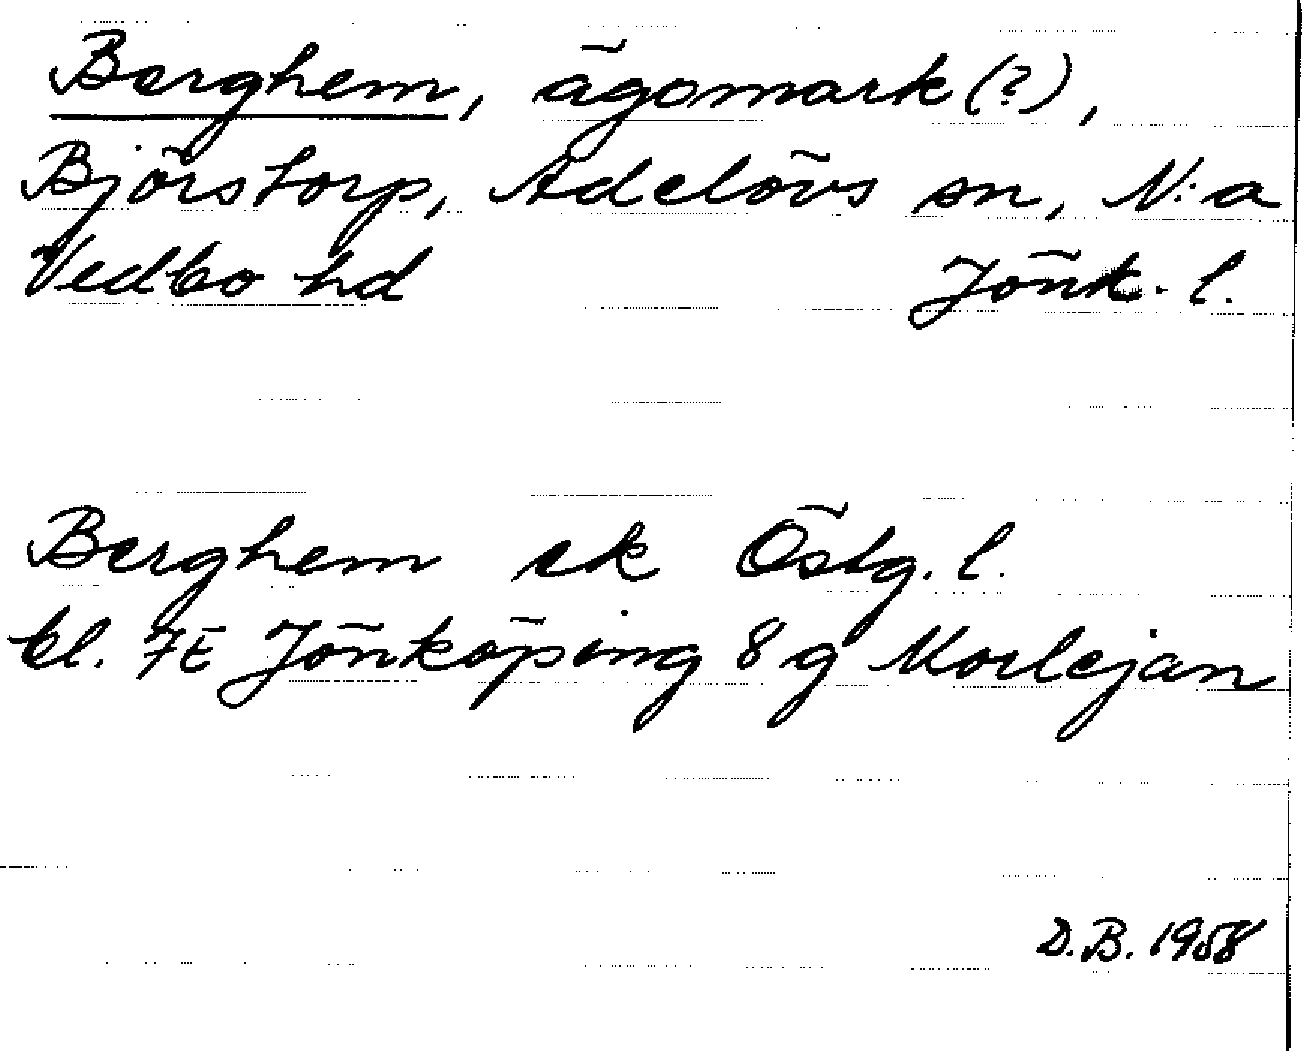 Berghem, ägomark (?),
Björstorp, Adelövs sn, N:a
Vedbo hd Jönk. l.
Berghem ek Östg. l.
bl. 7E Jönköping 8 g Morlejan
D.B. 1958